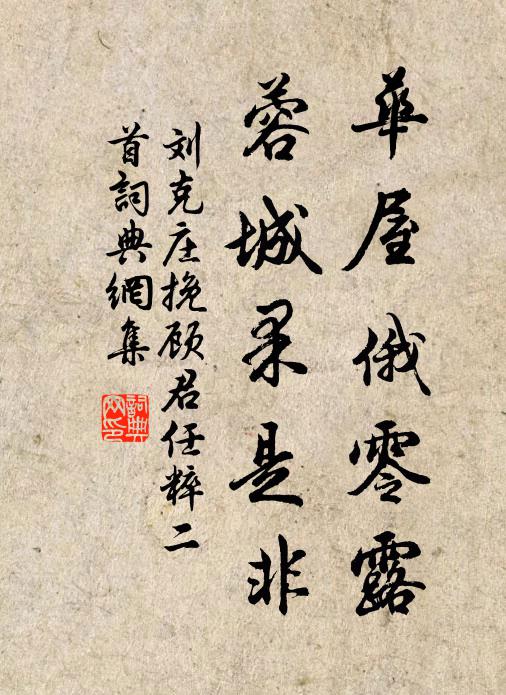 華屋俄零露
蓉城果是非
刘克庄挽顾君任粹二
首詞典網集
詞典网印